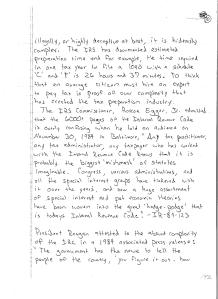 illegally, or highly deceptive at best, it is hideously
complex. The IRS has documented estimated
preparation time and for example, the time required
in one tax year to file a 1040 with a schedule
'C' and 'F' is 26 hours and 37 minutes. To think
that an average citizen must hire an expert
to pay tax is proof all our complexity that
has created the tax preparation industry.
The IRS Commissioner, Roscoe Egger, Jr. admitted
that the 6000+ pages of the Internal Revenue Code
is overly confusing when he told an audience on
November 30, 1984 in Baltimore, "Any tax practitioner,
and tax administrator, any taxpayer who has worked
with the Internal Revenue Code knows that it is
probably the biggest 'mishmash' of statutes
imaginable. Congress, various administrations, and
all the special interest groups have tinkered with
it over the years, and now a huge assortment
of special interest and past economic theories
have been woven into the great 'hodge-podge' that
is today's Internal Revenue Code." -IR-84-123
President Reagan attested to the absurd complexity
of the IRC in a 1984 associated press release:
"The government has the nerve to tell the
people of the country, 'you figure it out, how